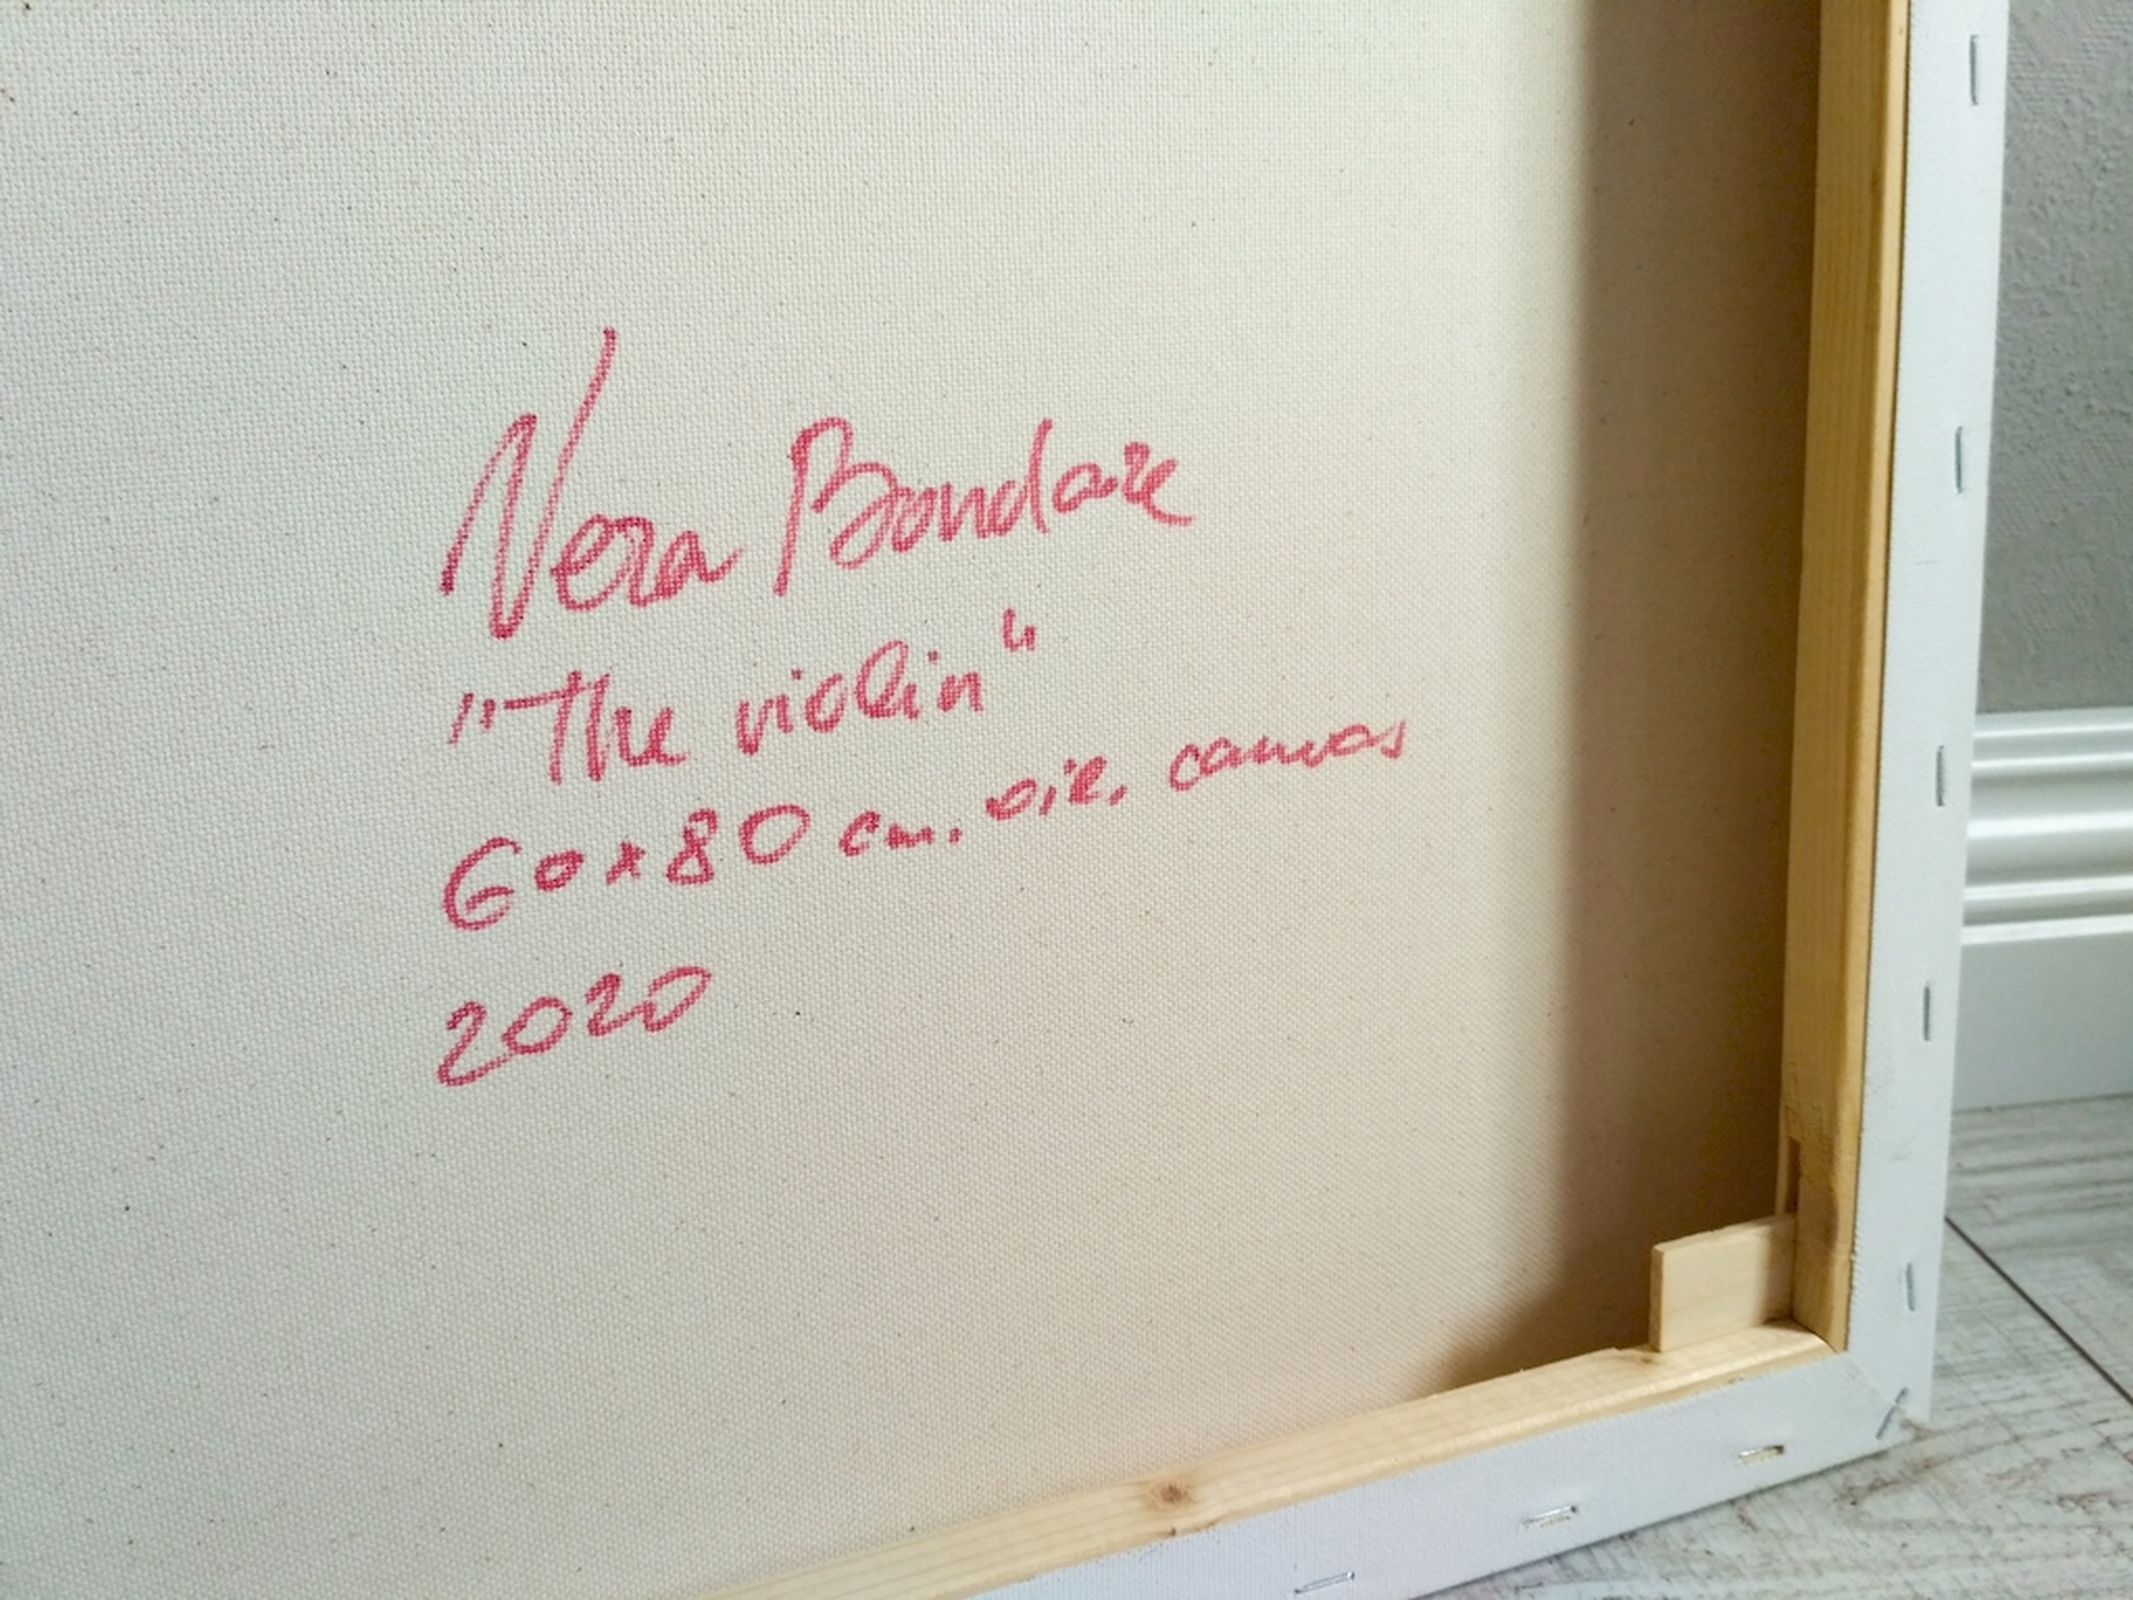 Vera Bondare
"The violin"
60x80 cm. oil, canvas
2020